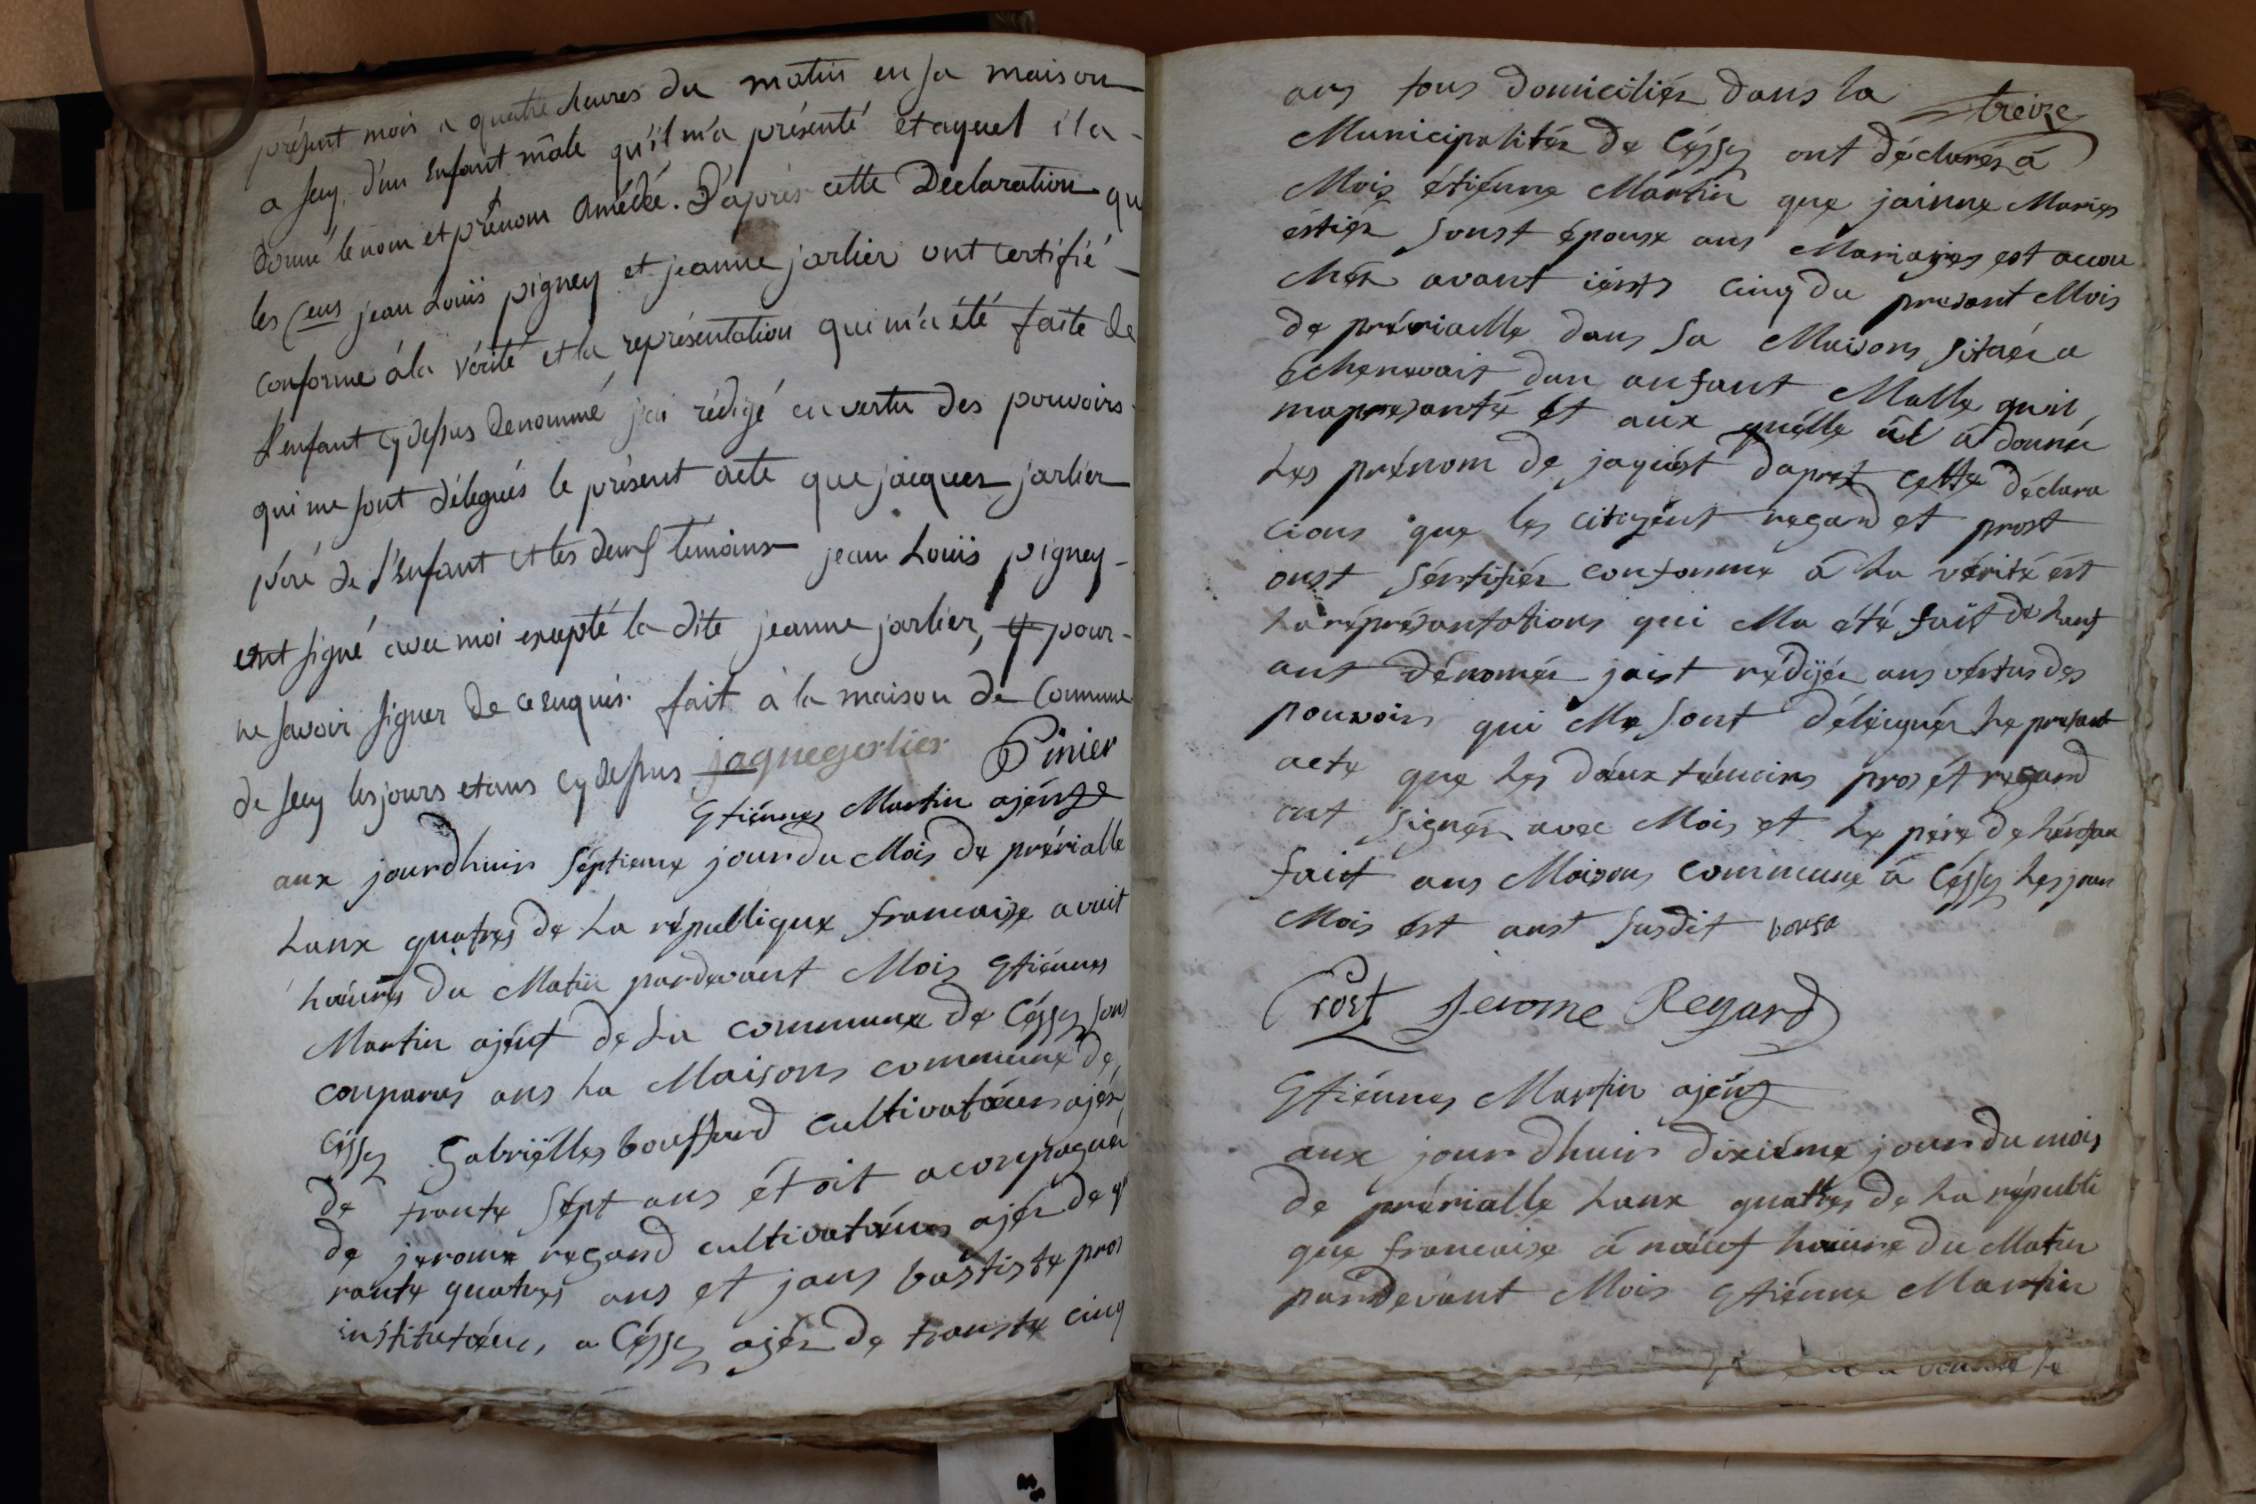 présent mois a quatre heures du matin en sa maison
a Secy, d'un Enfant mâle qu'il m'a présenté et aquel il a -
donné le nom et prénom Amédée. D'après cette Déclaration qu
les Cens jean Louis pigney et jeanne jarlier ont certifié -
conforme à la vérité et la représentation qui m'a été faite de
l'enfant cy dessus denommé j'ai rédigé en vertu des pouvoirs
qui me sont délegués le présent acte que jacques jarlier
péré de l'Enfant et les deux temoins jean Louis pigney -
ont signé avec moi excepté la dite jeanne jarlier, pour -
ne savoir signer de ce enquis. fait à la maison de Commune
de Secy les jours et ans cy dessus jaquegerlier Pinier
Etiénnes Martin ajént
aux jourdhuis séptieme jour du Mois de prérialle
Lanx quatres de La républiqux francoise a vuit
hoeures du Matin pardevant Mois Etiénnes
Martin ajént de La commune de Céssy sons
conparus ans La Maisons commune de
Céssy Gabriëlles bouffard cultivatoeurs ajés
de trante sépt ans étoit aconpagnié
de jerome regard cultivatoeurs ajés de q
rante quatres ans et jans baptiste pros
institutoeur, a Céssy ajés de transte cinq
treize
ans tous domiciliés dans la
Municipalités de Céssy ont déclarés à
Mois étiénne Martin que jainne Maries
éstiés sonst épouse ans Mariages est accou
chés avant iérts cinq du presant Mois
de prérialle dans sa Maisons sitnéé a
échenevait dun anfant Malle qu'il
mapresanté ét aux quélle âl â donnéé
Les prénom de jaquést daprét cette déclara
cions que les citoyént regard et prost
onst sértifiés conforme â La vérité ést
La réprésantations qui Ma été fait de Lanf
ant dénomés jaist rédijés ans vértus des
pouvoirs qui Me sont déléigués Le presant
acte que Les daux témoins pros ét regard
ont signés avec Mois et Le pére de Lénfan
fait ans Maisons commune â Céssy Les jours
Mois ést anst susdit boufa
Prost Jerome Regard
Etiénnes Martin ajént
aux jourdhuis dixiéme jours du mois
de prérialle Lanx quattes de La républi
que francoise â noeuf hoeure du Matin
pardevant Mois Etiénne Martin